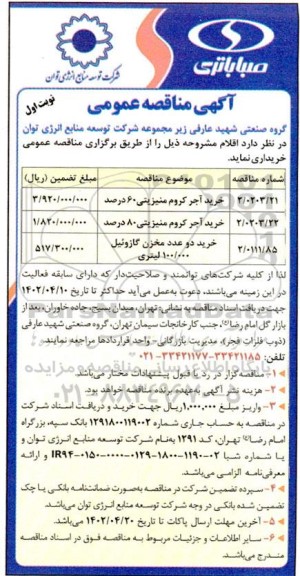 صباباتری
شرکت توسعه منابع انرژی توان
آگهی مناقصه عمومی
نوبت اول
گروه صنعتی شهید عارفی زیر مجموعه شرکت توسعه منابع انرژی توان
در نظر دارد اقلام مشروحه ذیل را از طریق برگزاری مناقصه عمومی
خریداری نماید.
شماره مناقصه موضوع مناقصه مبلغ تضمین (ریال)
۲/۰۲۰۳/۲۱ خرید آجر کروم منیزیتی ۶۰ درصد ۳/۹۲۰/۰۰۰/۰۰۰
۲/۰۲۰۳/۲۲ خرید آجر کروم منیزیتی ۸۰ درصد ۱/۸۲۰/۰۰۰/۰۰۰
۲/۰۱۱۱/۸۵ خرید دو عدد مخزن گازوئیل ۱۰۰/۰۰۰ لیتری ۵۱۷/۳۰۰/۰۰۰
لذا از کلیه شرکت‌های توانمند و صلاحیت‌دار که دارای سابقه فعالیت
در این زمینه می‌باشند، دعوت بعمل می‌آید حداکثر تا تاریخ ۱۴۰۲/۰۴/۱۰
جهت دریافت اسناد مناقصه به نشانی تهران، میدان بسیج، جاده خاوران، بعد از
بازار گل امام رضا(ع)، جنب کارخانجات سیمان تهران، گروه صنعتی شهید عارفی
(ذوب فلزات فجر)، مدیریت بازرگانی- واحد قراردادها مراجعه نمایند.
تلفن: ۳۳۴۲۱۱۸۵-۳۳۴۲۱۱۷۷-۰۲۱
۱- مناقصه گزار در رد یا قبول پیشنهادات مختار می‌باشد.
۲- هزینه نشر آگهی به عهده برنده مناقصه خواهد بود.
۳- واریز مبلغ ۱,۰۰۰,۰۰۰ ریال جهت خرید و دریافت اسناد شرکت
در مناقصه به حساب جاری شماره ۱۲۹۱۸۰۰۱۱۹۰۰۲ بانک سپه، بزرگراه
امام رضا(ع) تهران، کد ۱۲۹۱ به‌نام شرکت توسعه منابع انرژی توان و
یا شماره شبا IR۹۴-۰۱۵۰-۰۰۰۰-۰۱۲۹-۱۸۰۰-۱۱۹۰-۰۲ و ارائه
معرفی‌نامه الزامی می‌باشد.
۴- سپرده تضمین شرکت در مناقصه به‌صورت ضمانت‌نامه بانکی یا چک
تضمین شده بانکی در وجه شرکت توسعه منابع انرژی توان می‌باشد.
۵- آخرین مهلت ارسال پاکات تا تاریخ ۱۴۰۲/۰۴/۲۰ می‌باشد.
۶- سایر اطلاعات و جزئیات مربوط به مناقصه فوق در اسناد مناقصه
مندرج می‌باشد.